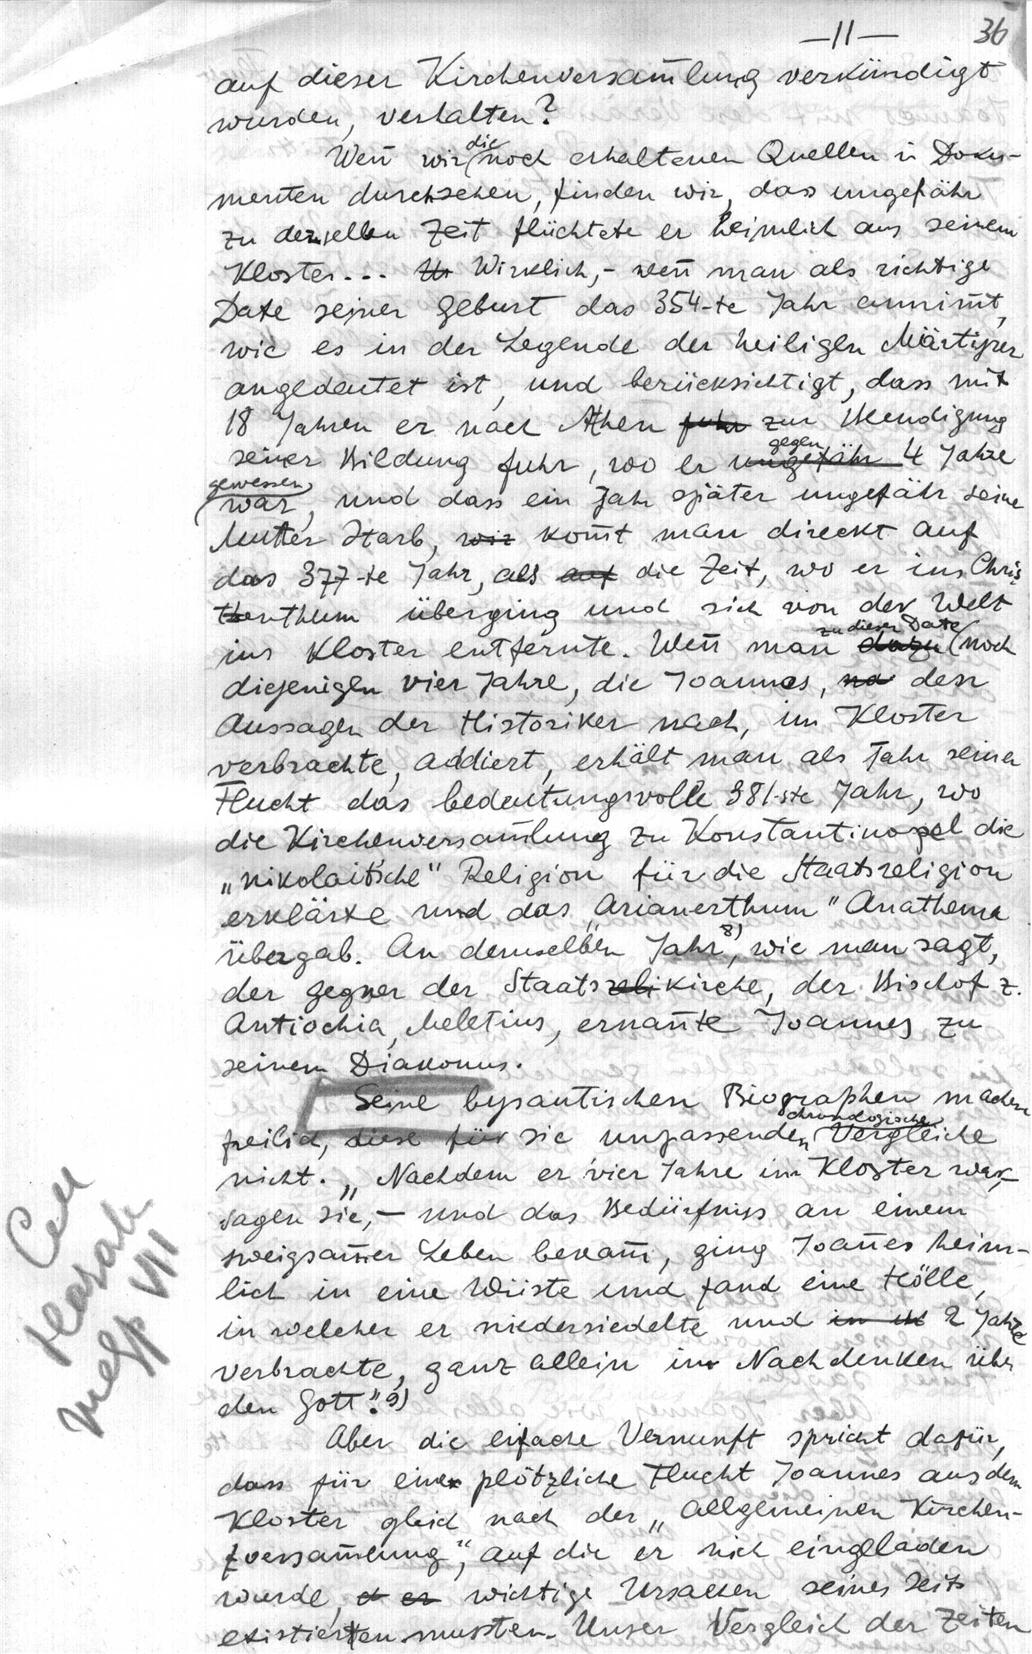 —11— 36
auf dieser Kirchenversam̄lung verkündigt
wurden, verhalten?
Wen̄ wir die noch erhaltenen Quellen u Doku-
menten durchsehen, finden wir, dass ungefähr
zu derselben Zeit flüchtete er heimlich aus seinem
Kloster... Wirklich, – wen̄ man als richtige
Date seiner Geburt das 354-te Jahr annim̄t,
wie es in der Legende der heiligen Märtyrer
angedeutet ist, und berücksichtigt, dass mit
18 Jahren er nach Athen fuhr zur Beendigung
seiner Bildung fuhr, wo er ungefähr gegen 4 Jahre
gewesen war, und dass ein Jahr später ungefähr seine
Mutter starb, wir kom̄t man direckt auf
das 377-te Jahr, als auf die Zeit, wo er ins Chris-
tenthum überging und sich von der Welt
ins Kloster entfernte. Wen̄ man dazu zu dieser Date noch
diejenigen vier Jahre, die Joannes, na den
Aussagen der Historiker nach, im Kloster
verbrachte, addiert, erhält man als Jahr seiner
Flucht das bedeutungsvolle 381-ste Jahr, wo
die Kirchenversam̄lung zu Konstantinopel die
„nikolaitsche" Religion für die Staatsreligion
erklärte und das „Arianerthum" Anathema
übergab. An demselben Jahr 8), wie man sagt,
der Gegner der Staatsreli kirche, der Bischof z.
Antiochia, Meletius, ernan̄te Joannes zu
seinem Diakonus.
Seine bysantischen Biographen machen
freilich, diese für sie unpassenden chronologische Vergleiche
nicht. „Nachdem er vier Jahre im Kloster war, –
sagen sie, – und das Bedürfniss an einem
sweigsamer Leben bekam̄, ging Joan̄es heim-
lich in eine Wüste und fand eine Hölle,
in welcher er niedersiedelte und 2 Jahre
verbrachte, ganz allein im Nachdenken über
den Gott". 9)
Aber die eifache Vernunft spricht dafür,
dass für eine plötzliche Flucht Joannes aus dem
Kloster gleich nach der „allgemeinen Kirchen-
versam̄lung", auf die er nich eingeladen
wurde, wichtige Ursachen seines Seits
existierten mussten. Unser Vergleich der Zeiten